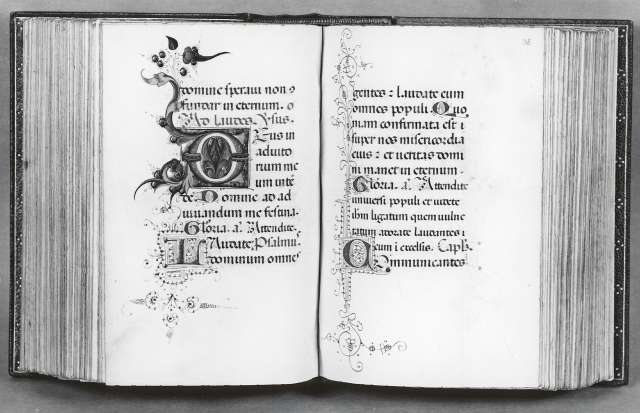 domine speraui non ↄ
fundar in eternum. o
Ad laudes. Ẏsus.
Deus in
adiuto
rium me
um inte
de. Domine ad ad
iuuandum me festina.
Gloria. añ. Attendite.
Laudate, Psalmus
dominum omnes
gentes: laudate eum
omnes populi. Quo
niam confirmata est i
super nos misericordia
eius: et ueritas domi
ni manet in eternum.
Gloria. añ. Attendite
uniuersi populi et uidete
ihm ligatum quem uulne
ratum adorate laudantes i
Deum i excelsis. Capłm.
Communicantes